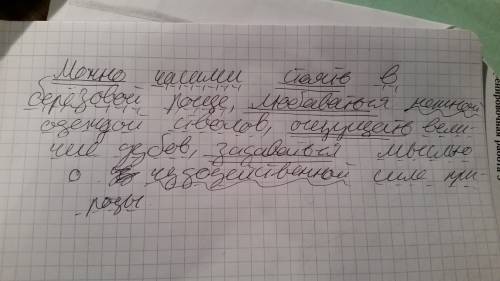 Можно часами стоять в
берёзовой роще, любаваться нежной
одеждой стволов, ощущдать вели-
чие дубов, задаваться мыслью
о чудодейственной силе при-
роды